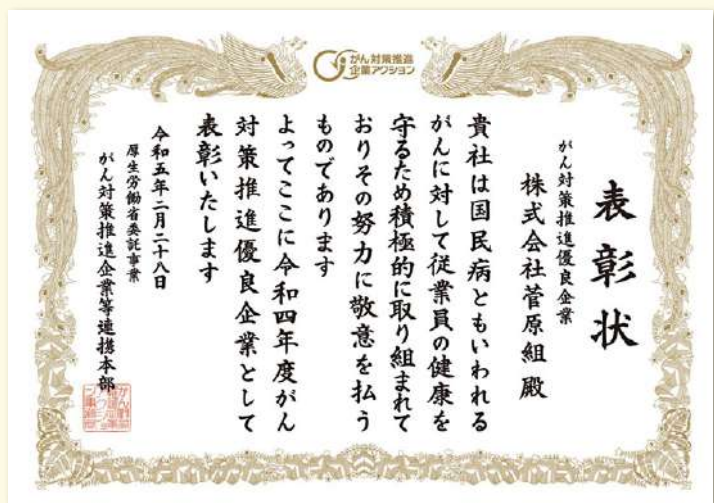 がん対策推進
企業アクション
表彰状
がん対策推進優良企業
株式会社菅原組 殿
貴社は国民病ともいわれる
がんに対して従業員の健康を
守るため積極的に取り組まれて
おりその努力に敬意を払う
ものであります
よってここに令和四年度がん
対策推進優良企業として
表彰いたします
令和五年二月二十八日
厚生労働省委託事業
がん対策推進企業等連携本部